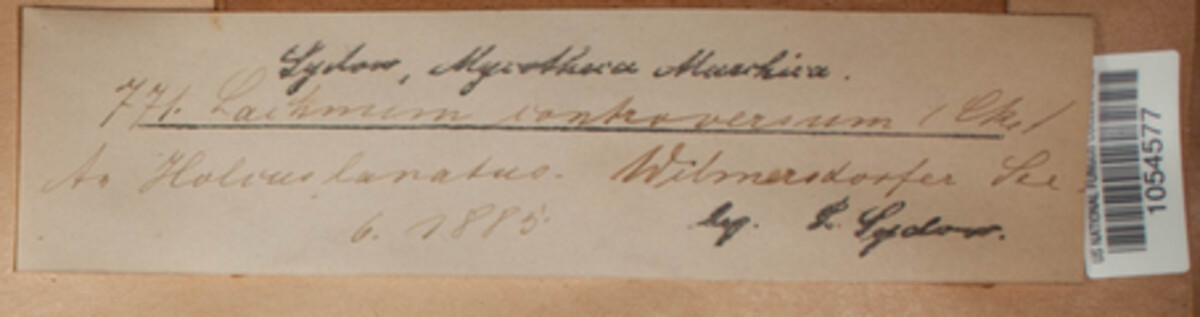 Sydow, Mycotheca Marchica.
771. Lachnum controversum (Cke)
An Holcus lanatus. Wilmersdorfer See.
6. 1885 leg. P. Sydow.
US NATIONAL FUNGUS
1054577